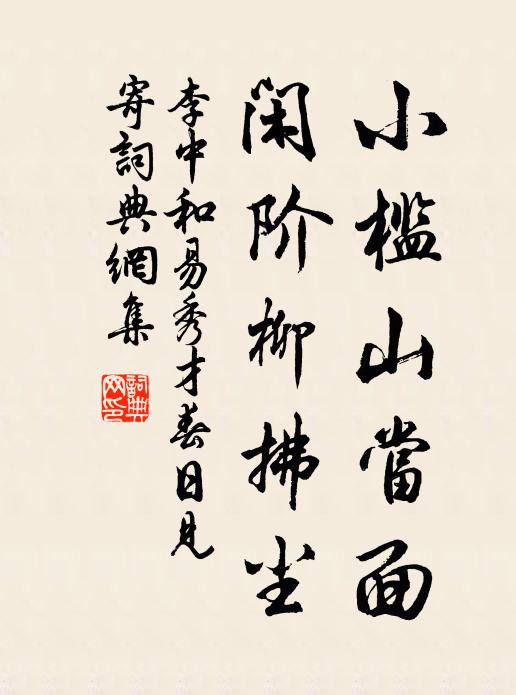 小檻山當面
闲阶柳拂尘
李中和易秀才春日見
寄詞典網集
詞典
网印